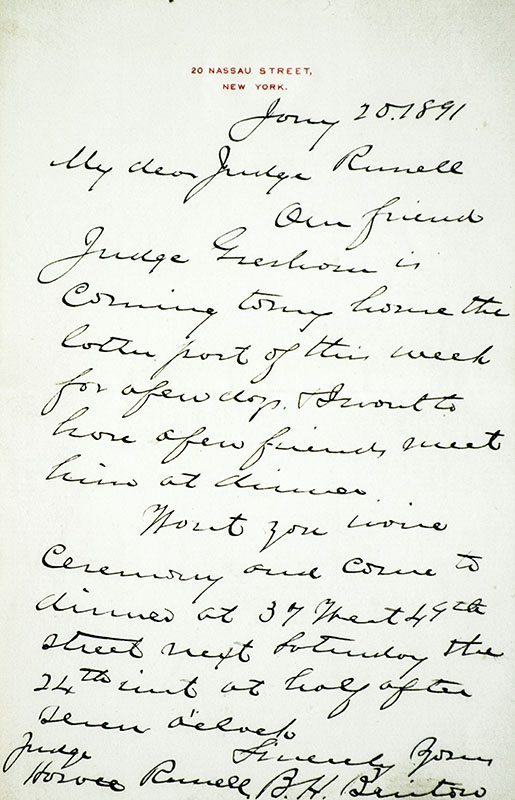 20 NASSAU STREET,
NEW YORK.
Jany 20. 1891
My dear Judge Russell
Our friend
Judge Gresham is
Coming to my home the
latter part of this week
for a few days. & I want to
have a few friends meet
him at dinner.
Wont you waive
Ceremony and come to
dinner at 37 West 49th
street next Saturday the
24th inst at half after
seven o'clock
Sincerely Yours
B. H. Bristow
Judge
Horace Russell